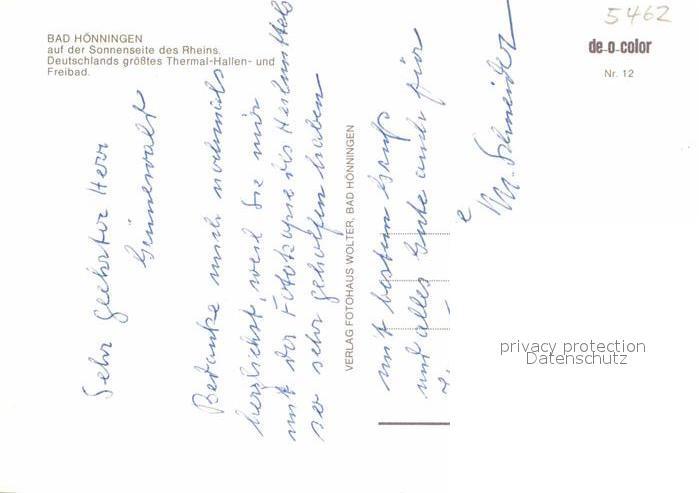 BAD HÖNNINGEN
auf der Sonnenseite des Rheins.
Deutschlands größtes Thermal-Hallen- und
Freibad.
5462
de-o-color
Nr. 12
VERLAG FOTOHAUS WOLTER, BAD HÖNNINGEN
Sehr geehrter Herr
Bedanke mich nochmals
herzlichst, weil Sie mir
mit der Fotokopie des
so sehr geholfen haben
mit bestem Gruß
und alles Gute auch für
M. Schneider
privacy protection
Datenschutz